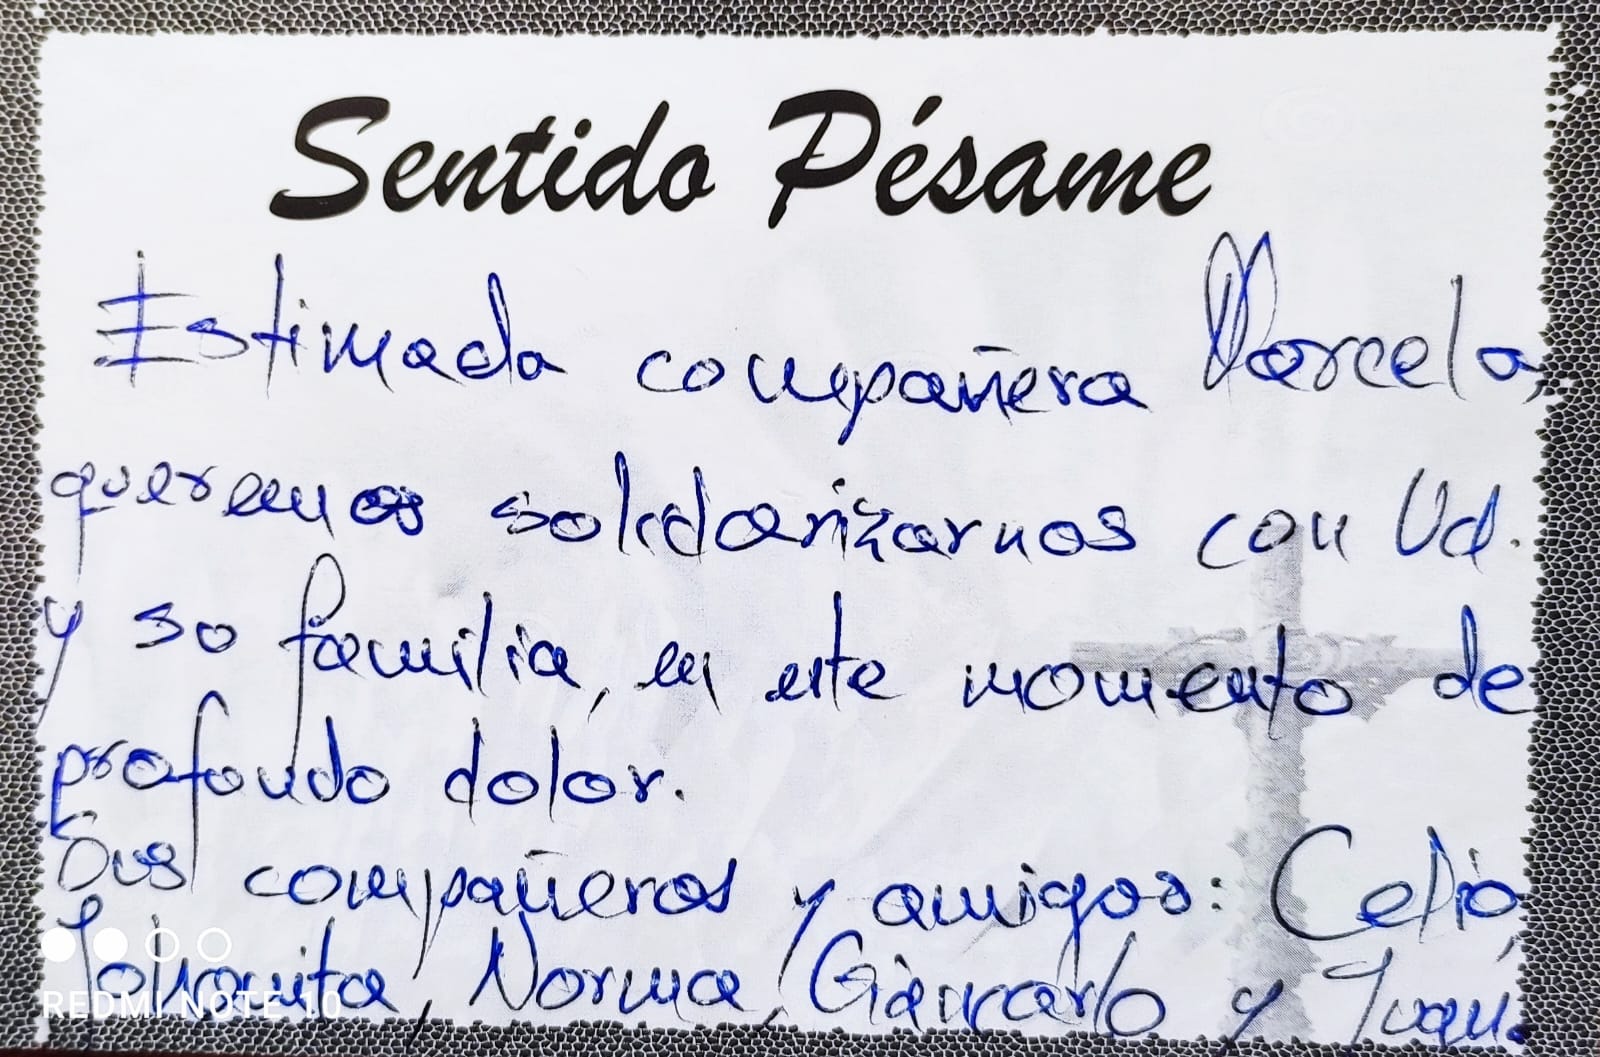 Sentido Pésame
Estimada compañera Marcela,
queremos solidarizarnos con Ud.
y su familia, en este momento de
profundo dolor.
Sus compañeros y amigos: Celia
Normra, Giancarlo y
REDMI NOTE 10